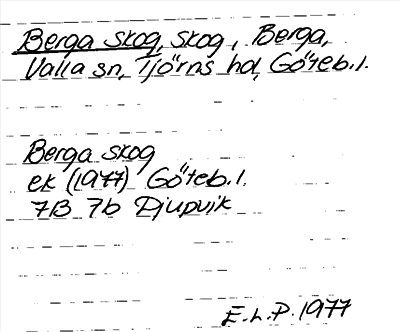 Berga skog, skog, Berga,
Valla sn, Tjörns hd, Göteb. l.
Berga skog
ek (1977) Göteb. l.
7B 7b Djupvik
E.L.P. 1977